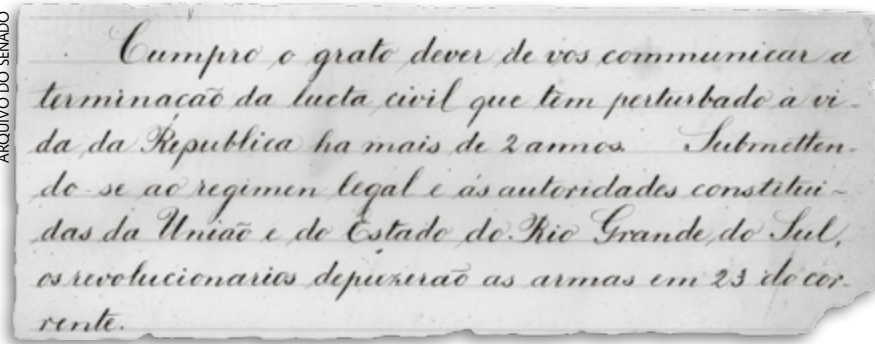 ARQUIVO DO SENADO
Cumpro o grato dever de vos communicar a
terminação da lucta civil que tem perturbado a vi-
da da Republica ha mais de 2 annos. Submetten-
do-se ao regimen legal e ás autoridades constitui-
das da União e do Estado do Rio Grande do Sul,
os revolucionarios depuzerão as armas em 23 do cor-
rente.